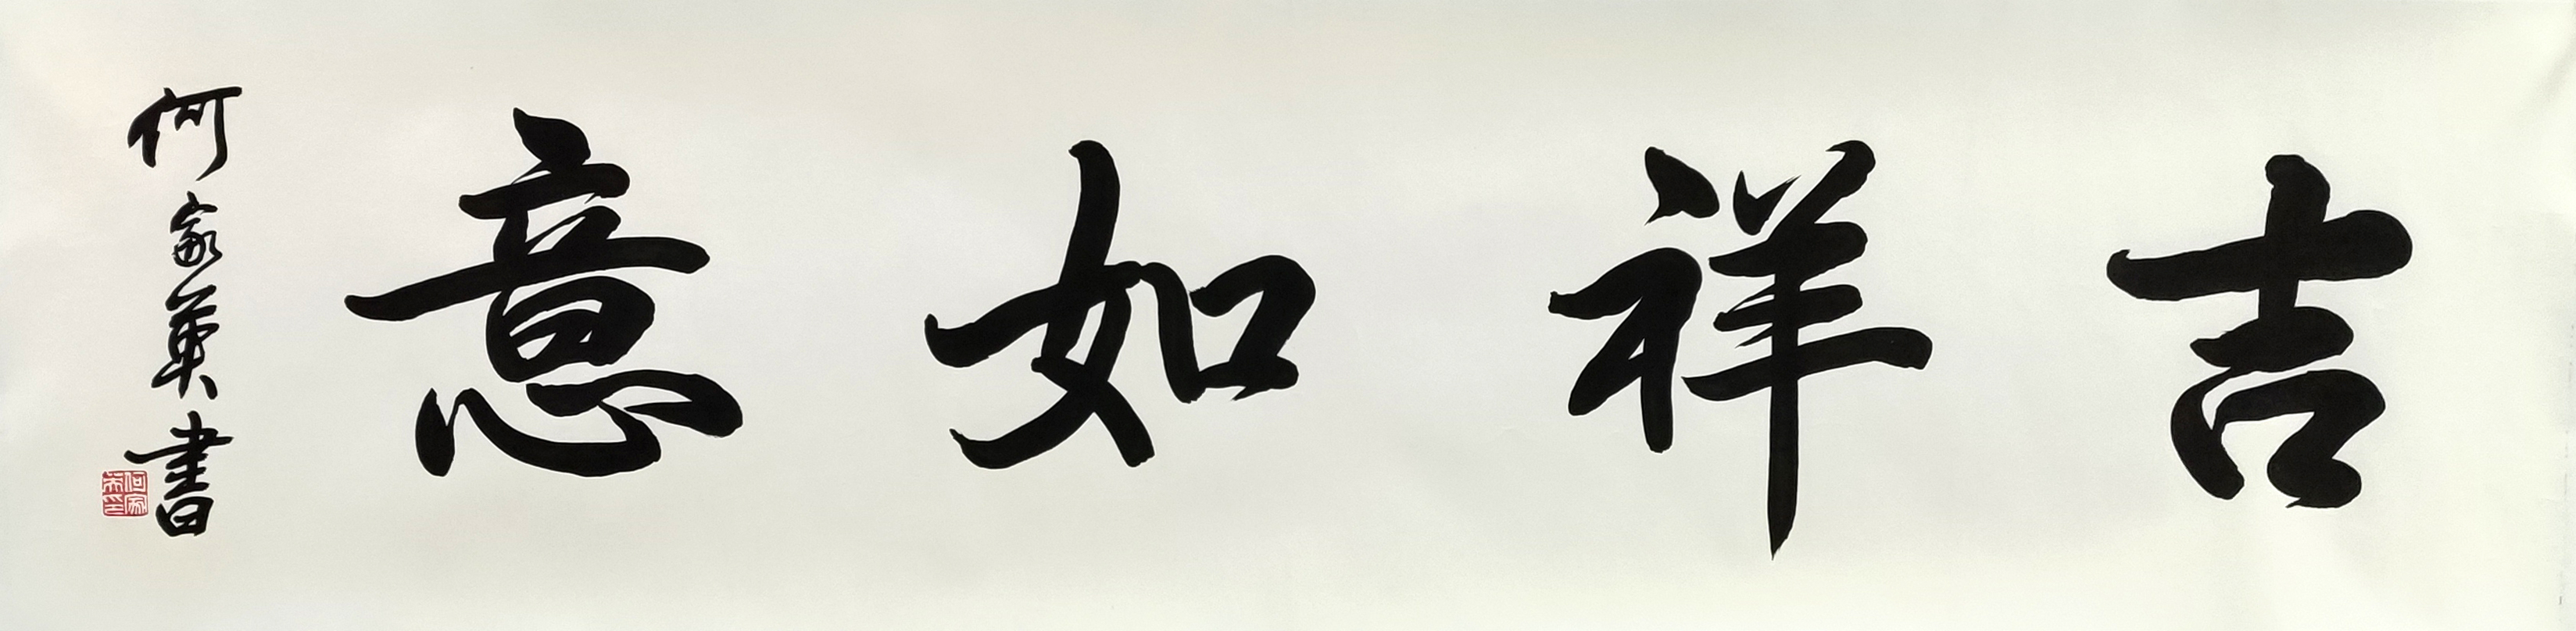 吉祥如意
何家英書
何家英印